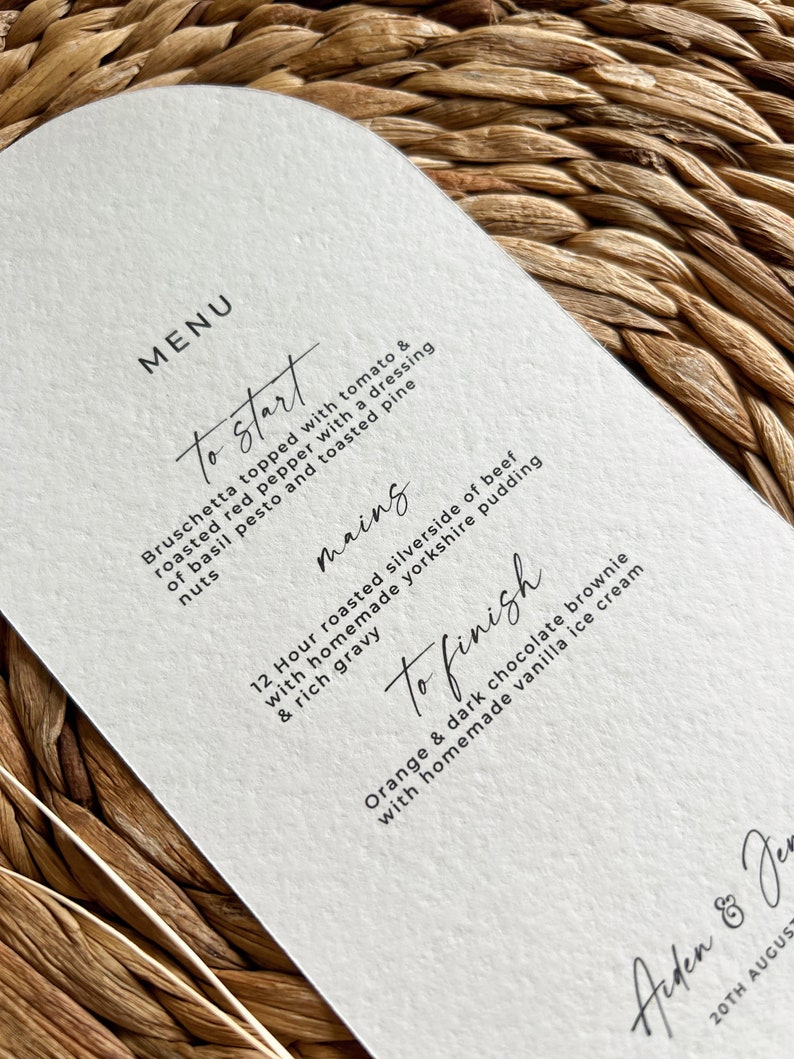 MENU
to start
Bruschetta topped with tomato &
roasted red pepper with a dressing
of basil pesto and toasted pine
nuts
mains
12 Hour roasted silverside of beef
with homemade yorkshire pudding
& rich gravy
to finish
Orange & dark chocolate brownie
with homemade vanilla ice cream
Aiden &
20TH AUGUST